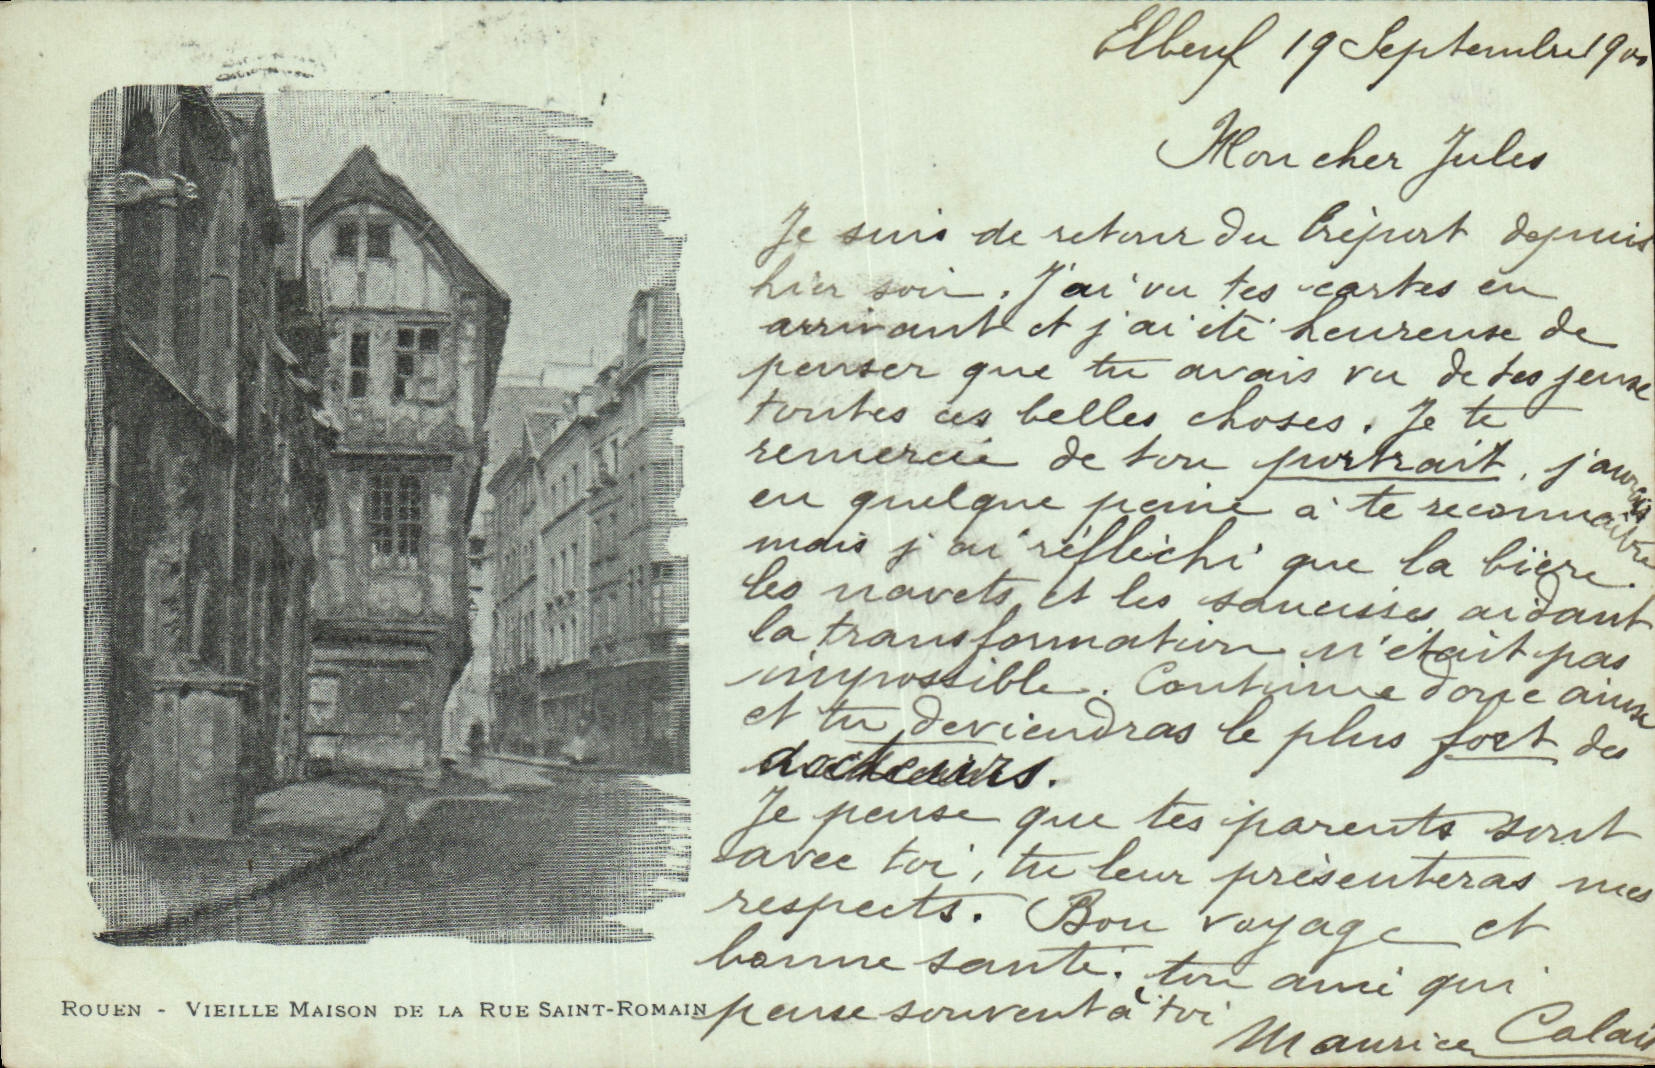 Elbeuf 19 Septembre 1900
Mon cher Jules
Je suis de retour du Tréport depuis
hier soir. J'ai vu tes cartes en
arrivant et j'ai été heureuse de
penser que tu avais vu de tes yeux
toutes ces belles choses. Je te
remercie de ton portrait, j'aurais
eu quelque peine à te reconnaître
mais j'ai réfléchi que la bière
les navets et les saucisses aidant
la transformation n'était pas
impossible. Continue donc ainsi
et tu deviendras le plus fort des
docteurs.
Je pense que tes parents sont
avec toi, tu leur présenteras mes
respects. Bon voyage et
bonne santé. ton ami qui
pense souvent à toi
Maurice Calais
ROUEN - VIEILLE MAISON DE LA RUE SAINT-ROMAIN